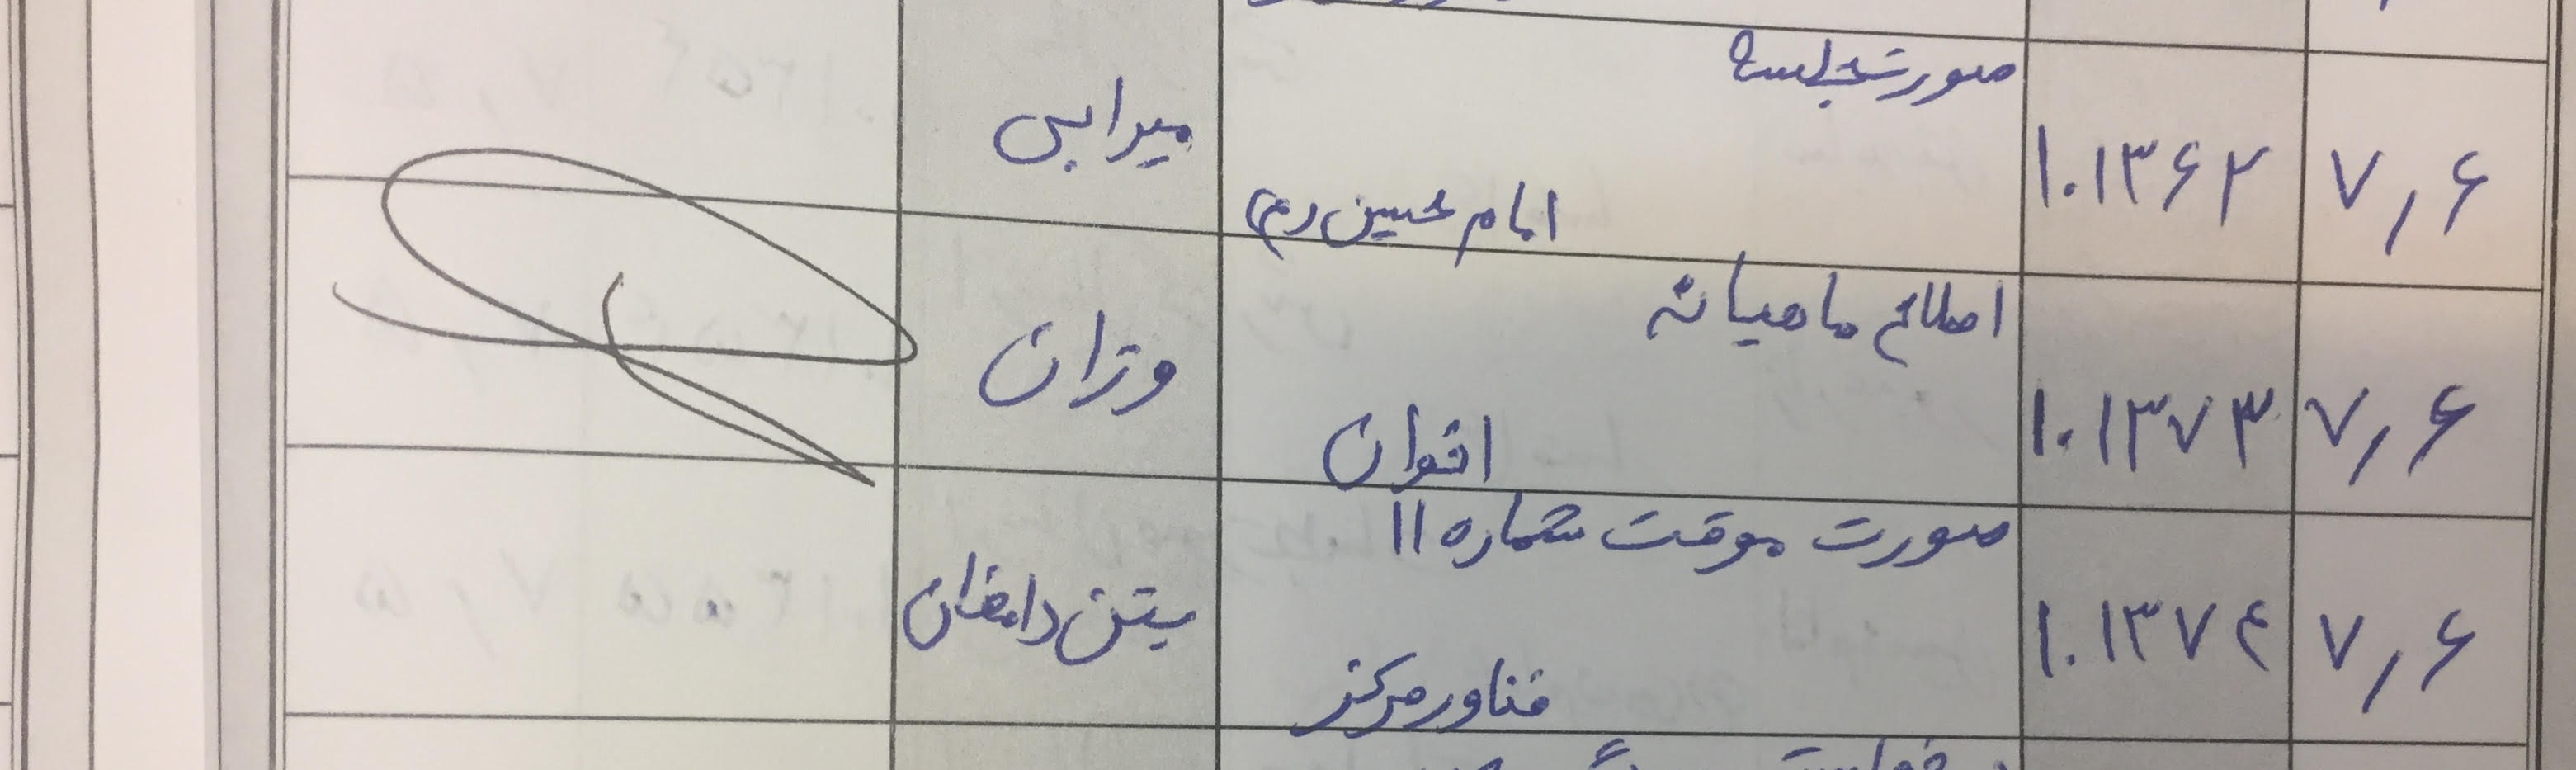 ۷٫۶ ۱۰۱۳۶۲ صورتجلسه
امام حسین (ع) میرابی
۷٫۶ ۱۰۱۳۷۳ اصلاح ماهیانه
اخوان وزان
۷٫۶ ۱۰۱۳۷۴ صورت موقت شماره ۱۱
فناور مرکز بتن دامغان